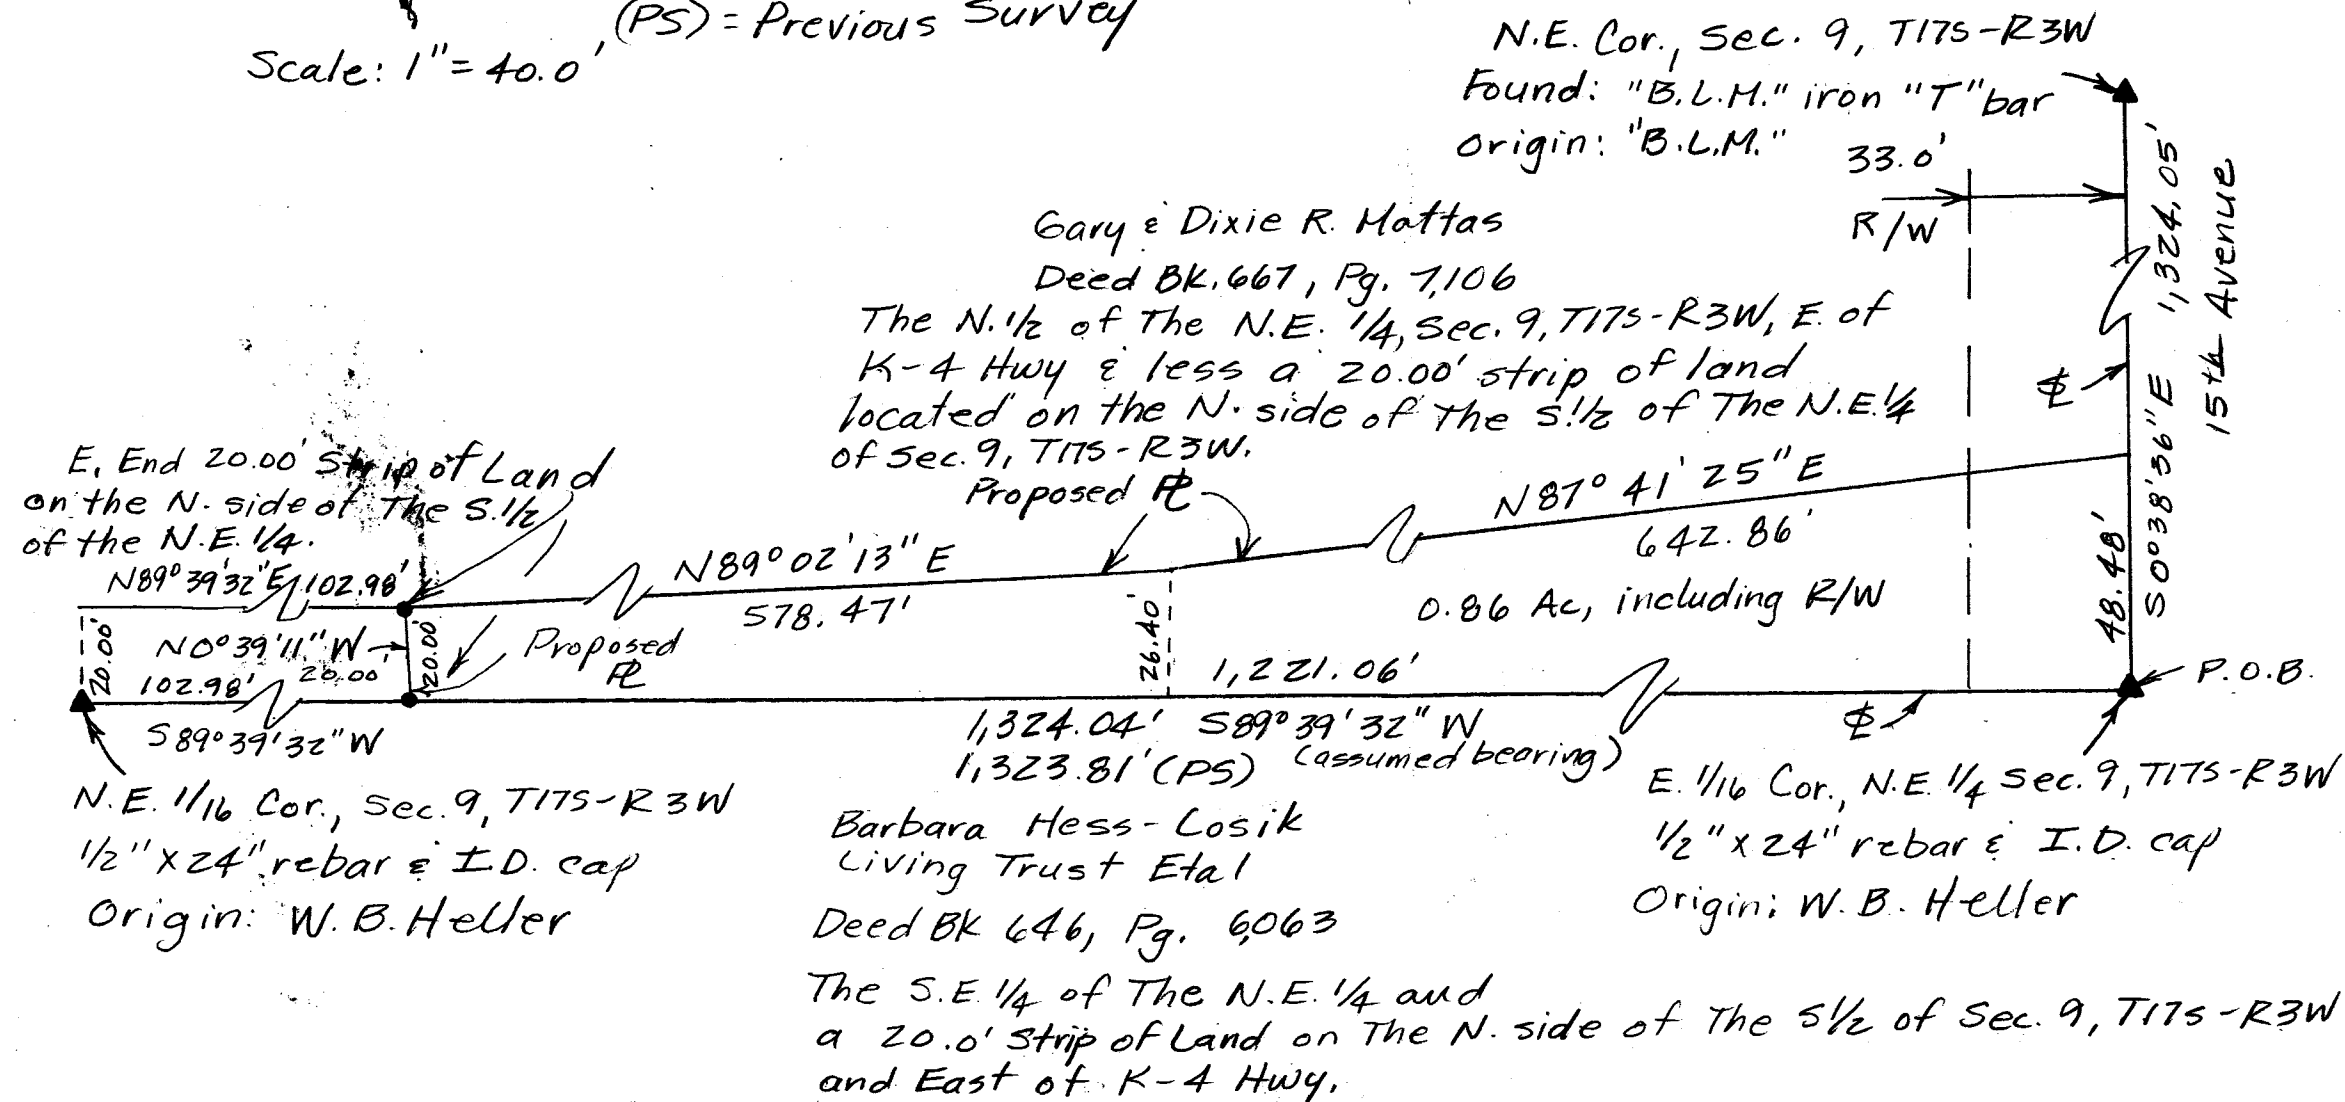 (PS) = Previous Survey
Scale: 1" = 40.0'
N.E. Cor., Sec. 9, T17S-R3W
Found: "B.L.M." iron "T" bar
Origin: "B.L.M."
33.0'
R/W
1,324.05'
15th Avenue
S0°38'36"E
48.48'
Gary & Dixie R. Mattas
Deed BK. 667, Pg. 7,106
The N. 1/2 of The N.E. 1/4, Sec. 9, T17S-R3W, E. of
K-4 Hwy & less a 20.00' strip of land
located on the N. side of The S. 1/2 of The N.E. 1/4
of Sec. 9, T17S-R3W.
Proposed PL
N87° 41' 25" E
642.86'
E. End 20.00' Strip of Land
on the N. side of The S. 1/2
of the N.E. 1/4.
N89°39'32"E 102.98'
N89°02'13" E
578.47'
CL
0.86 Ac, including R/W
20.00'
N0°39'11" W
20.00'
20.00'
Proposed
PL
26.40'
1,221.06'
102.98'
P.O.B.
S89°39'32"W
1,324.04' S89°39'32" W
1,323.81' (PS) (assumed bearing)
CL
N.E. 1/16 Cor., Sec. 9, T17S-R3W
1/2" x 24" rebar & I.D. cap
Origin: W.B. Heller
Barbara Hess-Cosik
Living Trust Etal
Deed BK 646, Pg. 6,063
The S.E. 1/4 of The N.E. 1/4 and
a 20.0' Strip of Land on The N. side of The S1/2 of Sec. 9, T17S-R3W
and East of K-4 Hwy.
E. 1/16 Cor., N.E. 1/4 Sec. 9, T17S-R3W
1/2" x 24" rebar & I.D. cap
Origin: W.B. Heller